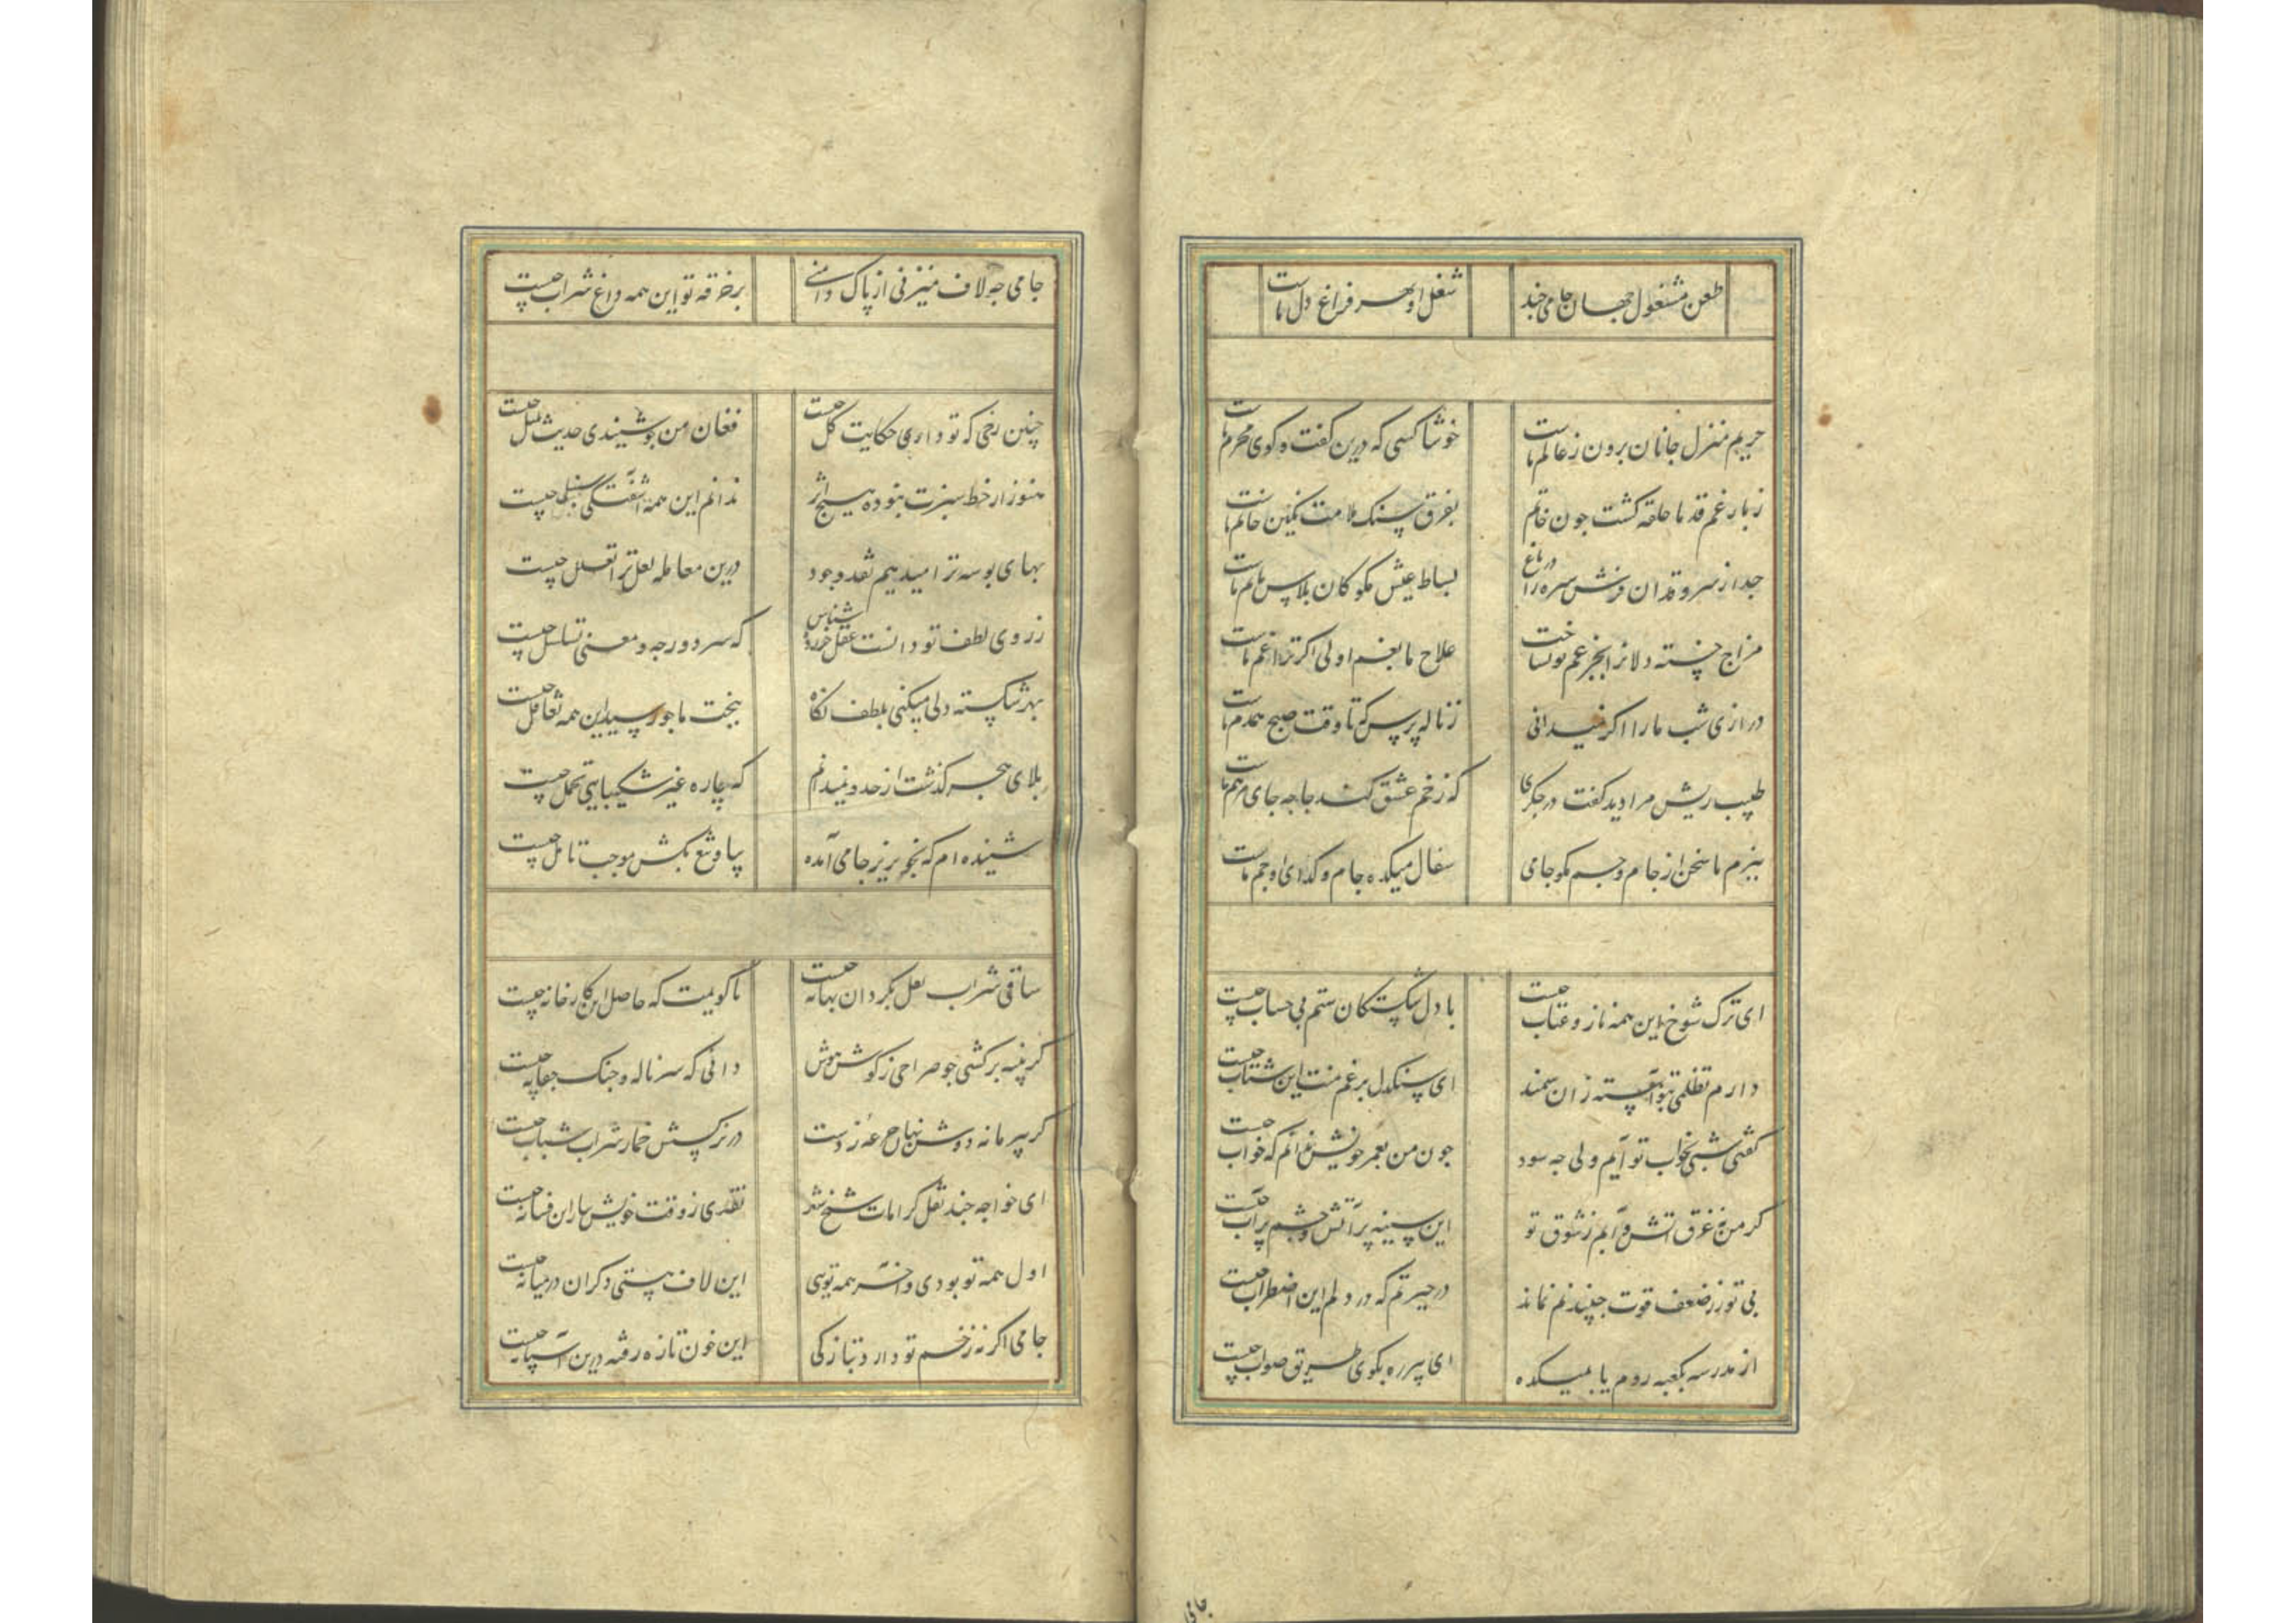 طعن مشغول جهان جامی چند شغل او بهر فراغ دل ماست
حریم منزل جانان برون ز عالم ماست خوشا کسی که درین گفت و کوی محرم ماست
ز بار غم قد ما حلقه کشت جون خاتم بفرق سنک ملامت نکین خاتم ماست
جدا ز سرو قدان فرش سبزه را در باغ بساط عیش مکو کان پلاس ماتم ماست
مزاج خسته دلانرا بجز غم تو نساخت علاج ما بغم اولی اکر ترا غم ماست
درازی شب ما را اکر نمیدانی ز ناله پرس که تا وقت صبح همدم ماست
طبیب ریش مرا دید کفت در جکری که زخم عشق کند جا جه جای مرهم ماست
ببزم ما سخن از جام و جم مکو جامی سفال میکده جام و کدای او جم ماست
ای ترک شوخ این همه ناز و عتاب جیست با دل شکستکان ستم بی حساب جیست
دارم تظلمی بتو آهسته ران سمند ای سنکدل برغم منت این شتاب جیست
کفتی شبی بخواب تو آیم ولی جه سود جون من بعمر خویش ندانم که خواب جیست
کر من نه غرق اتش و آبم ز شوق تو این سینه پر آتش و چشم پر آب جیست
بی تو ز ضعف قوت جنبیدنم نماند در حیرتم که در دلم این اضطراب جیست
از مدرسه بکعبه روم یا بمیکده ای پیر ره بکوی طریق صواب جیست
جامی
جامی جه لاف میزنی از پاک دامنی بر خرقه تو این همه داغ شراب جیست
چنین رخی که تو داری حکایت کل جیست فغان من جو شنیدی حدیث بلبل جیست
هنوز از خط سبزت نبوده هیچ اثر ندانم این همه آشفتگی سنبل جیست
بهای بوسه ترا میدهیم نقد وجود درین معامله لعل ترا تعلل جیست
ز روی لطف تو دانست عقل خرده شناس که سر دور جه و معنی تسلسل جیست
بهر شکسته دلی میکنی بلطف نکاه ببخت ما جو رسید این همه تغافل جیست
بلای هجر کذشت از حد و نمیدانم که چاره غیر شکیبایی و تحمل جیست
شنیده ام که بخونریز جامی آمده بیا و تیغ بکش موجب تامل جیست
ساقی شراب لعل بکردان بهانه جیست تا کویمت که حاصل این کارخانه جیست
کر پنبه برکشی جو صراحی ز کوش هوش دانی که سر ناله و جنک و جغانه جیست
کر پیر ما نه دوش نهاد جرعه ز دست در نرکسش خمار شراب شبانه جیست
ای خواجه جند نقل کرامات شیخ شهر نقدی ز وقت خویش بیار این فسانه جیست
اول همه تو بودی و آخر همه تویی این لاف هستی دکران در میانه جیست
جامی اکر نه زخم تو دارد بتازکی این خون تازه رفته درین آستانه جیست